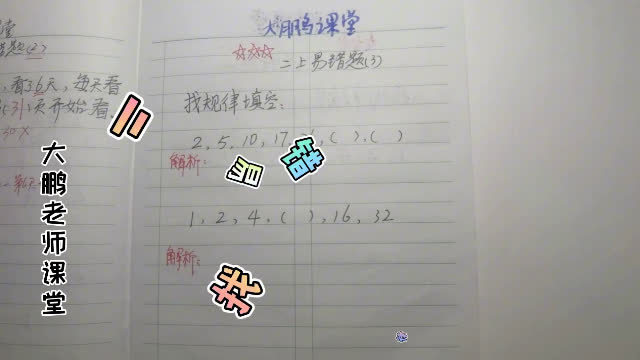 大鹏课堂
☆☆☆ 二上易错题(3)
找规律填空:
2, 5, 10, 17, ( ), ( )
解析:
1, 2, 4, ( ), 16, 32
解析:
看了6天,每天看
31页开始看。
30 ×
大鹏老师课堂
二
易
错
找